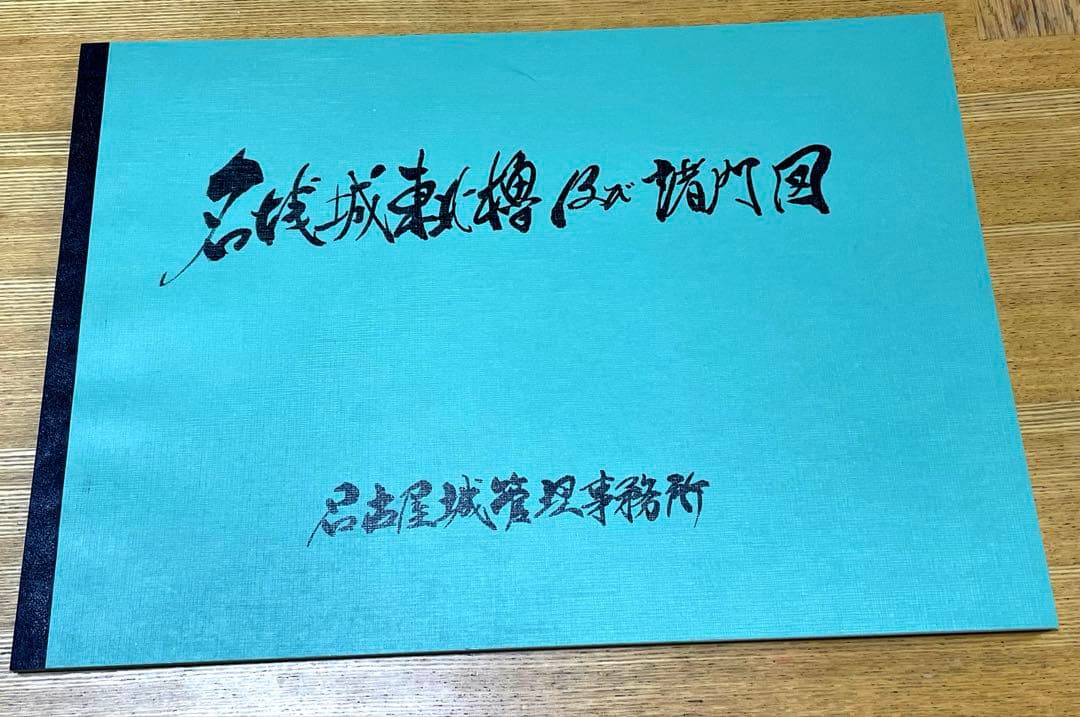 名城東北櫓及び諸門図
名古屋城管理事務所